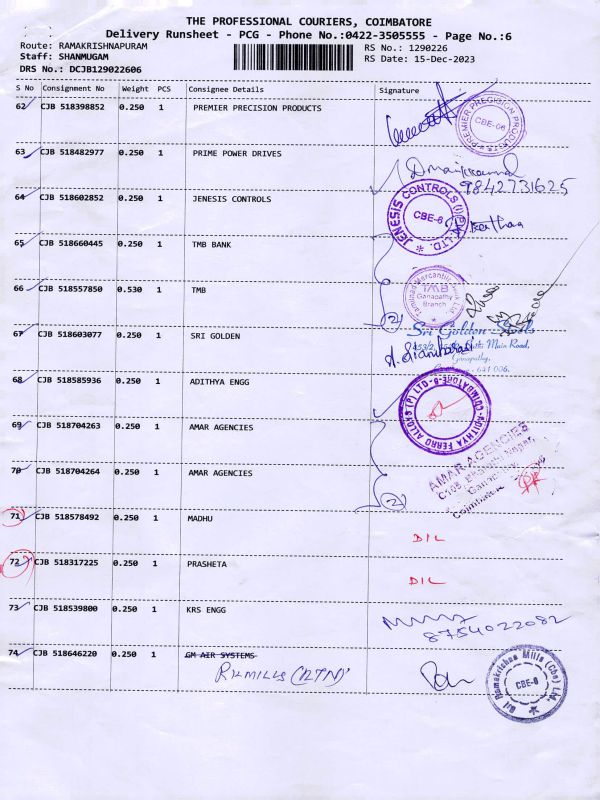 THE PROFESSIONAL COURIERS, COIMBATORE
Delivery Runsheet - PCG - Phone No.:0422-3505555 - Page No.:6
Route: RAMAKRISHNAPURAM RS No.: 1290226
Staff: SHANMUGAM RS Date: 15-Dec-2023
DRS No.: DCJB129022606
S No Consignment No Weight PCS Consignee Details Signature
62 CJB 518398852 0.250 1 PREMIER PRECISION PRODUCTS
PREMIER PRECISION PRODUCTS CBE-06
63 CJB 518482977 0.250 1 PRIME POWER DRIVES
9842731625
64 CJB 518602852 0.250 1 JENESIS CONTROLS
JENESIS CONTROLS (I) P LTD. CBE-6
65 CJB 518660445 0.250 1 TMB BANK
66 CJB 518557850 0.530 1 TMB
Tamilnad Mercantile Bank Ltd TMB Ganapathy Branch
(2)
67 CJB 518603077 0.250 1 SRI GOLDEN
Sri Golden Steels
Main Road,
Ganapathy,
641 006.
68 CJB 518585936 0.250 1 ADITHYA ENGG
ADITHYA FERRO ALLOYS (P) LTD COIMBATORE-6
69 CJB 518704263 0.250 1 AMAR AGENCIES
AMAR AGENCIES
70 CJB 518704264 0.250 1 AMAR AGENCIES
(2)
Coimbatore
71 CJB 518578492 0.250 1 MADHU D/L
72 CJB 518317225 0.250 1 PRASHETA D/L
73 CJB 518539800 0.250 1 KRS ENGG
8754022082
74 CJB 518646220 0.250 1 GM AIR SYSTEMS
RK MILLS (RTN)
Sri Ramakrishna Mills (Cbe) Ltd. CBE-6